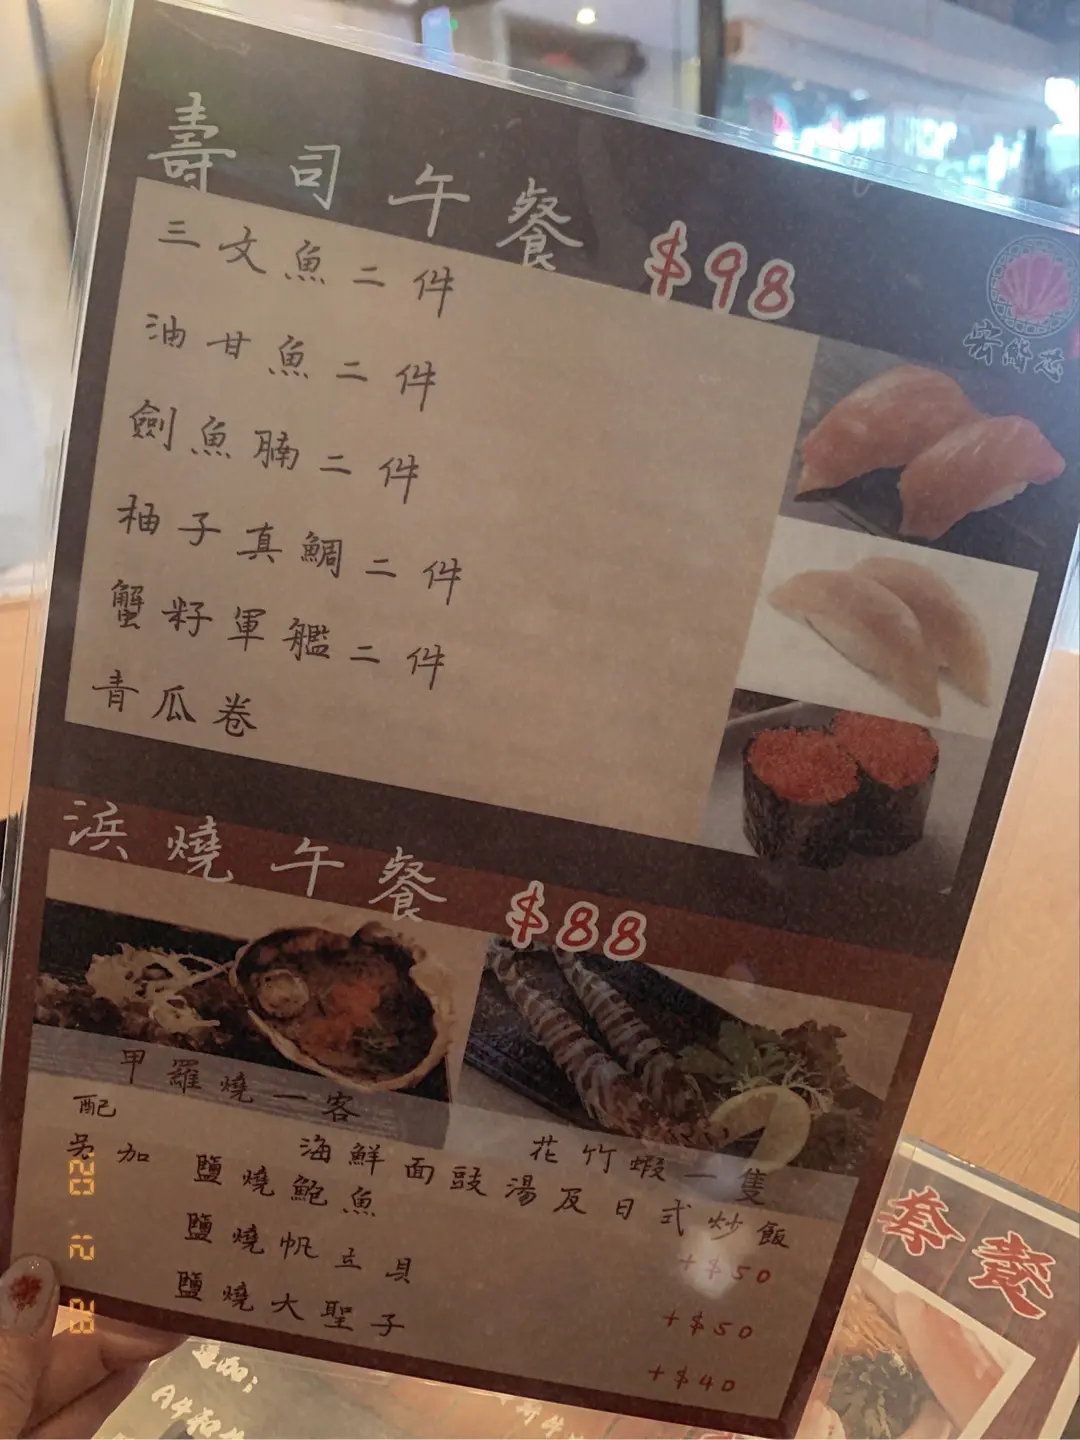 壽司午餐 $98
三文魚二件
油甘魚二件
劍魚腩二件
柚子真鯛二件
蟹籽軍艦二件
青瓜卷
浜燒午餐 $88
甲羅燒一客
花竹蝦二隻
配 海鮮面豉湯及日式炒飯
另加 鹽燒鮑魚 +$50
鹽燒帆立貝 +$50
鹽燒大聖子 +$40
220 12 28
套餐